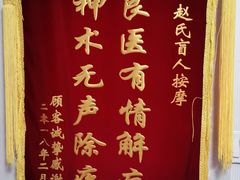 赵氏盲人按摩
良医有情解
神术无声除
顾客诚挚感谢
二零一八年二月